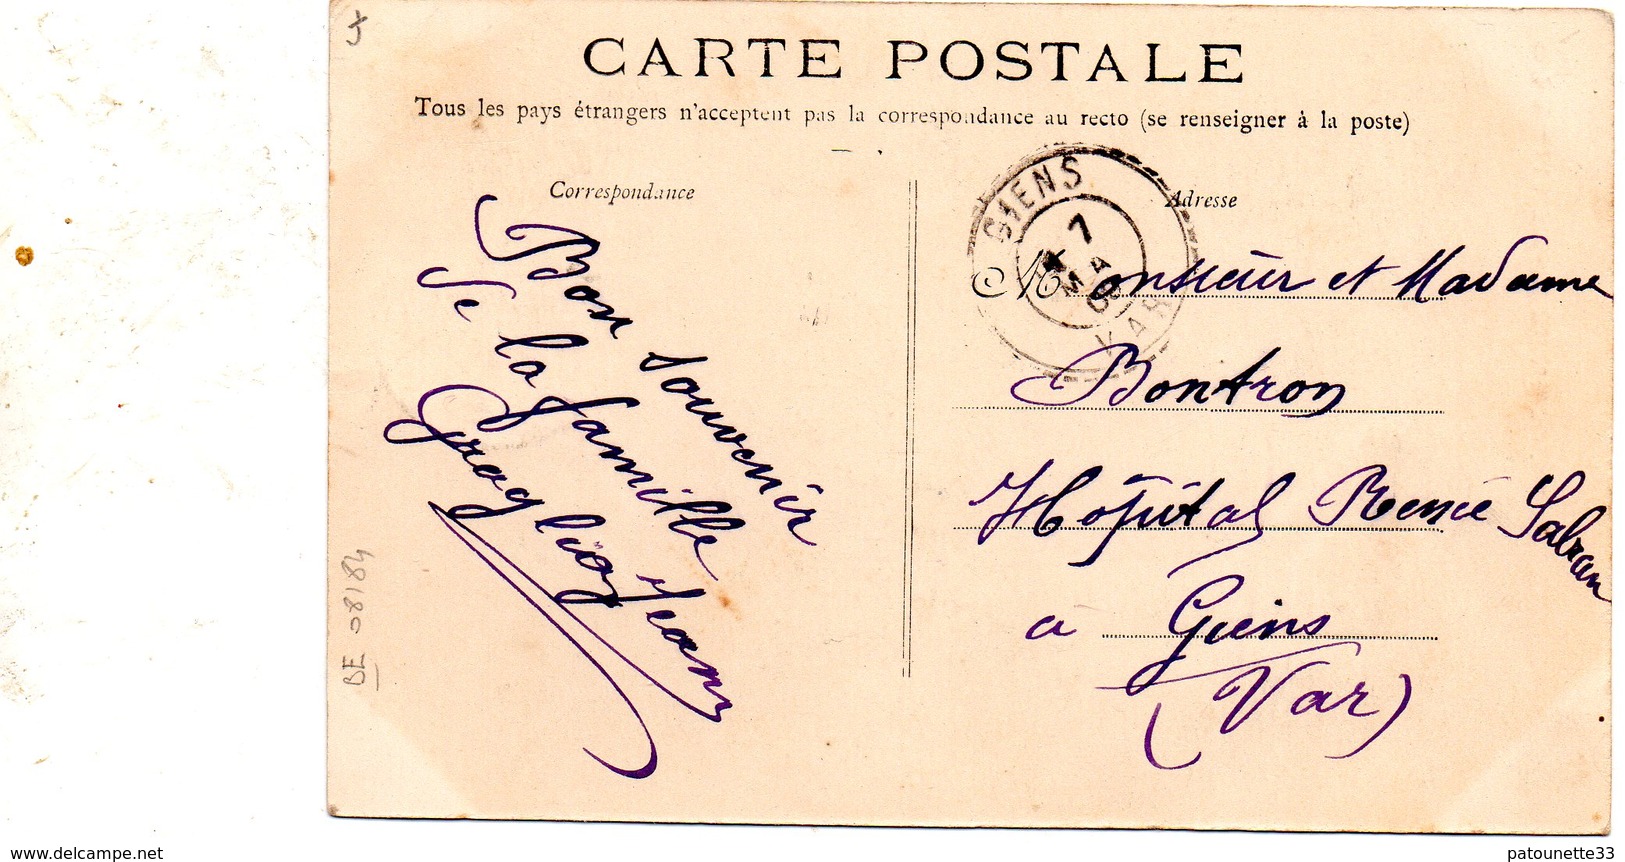 CARTE POSTALE
Tous les pays étrangers n'acceptent pas la correspondance au recto (se renseigner à la poste)
Correspondance
Adresse
GIENS
7
MA
VAR
Bon souvenir
de la famille
Jean
Monsieur et Madame
Bontron
Hôpital Renée Sabran
a Giens
(Var)
BE 08184
www.delcampe.net
patounette33